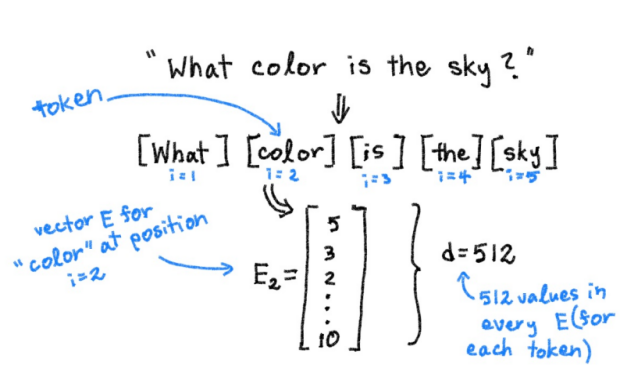 "What color is the sky?"
token
[What] [color] [is] [the] [sky]
i=1 i=2 i=3 i=4 i=5
vector E for
"color" at position
i=2
E₂=
5
3
2
⋮
10
d=512
512 values in
every E (for
each token)